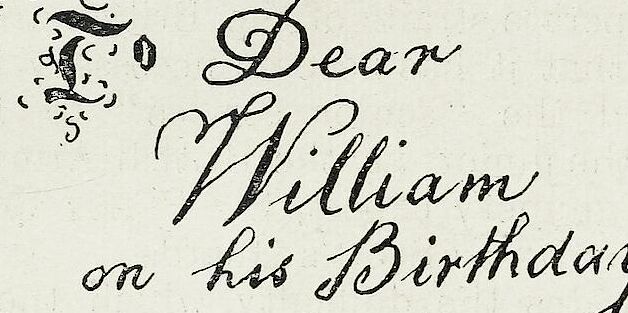 To Dear
William
on his Birthday